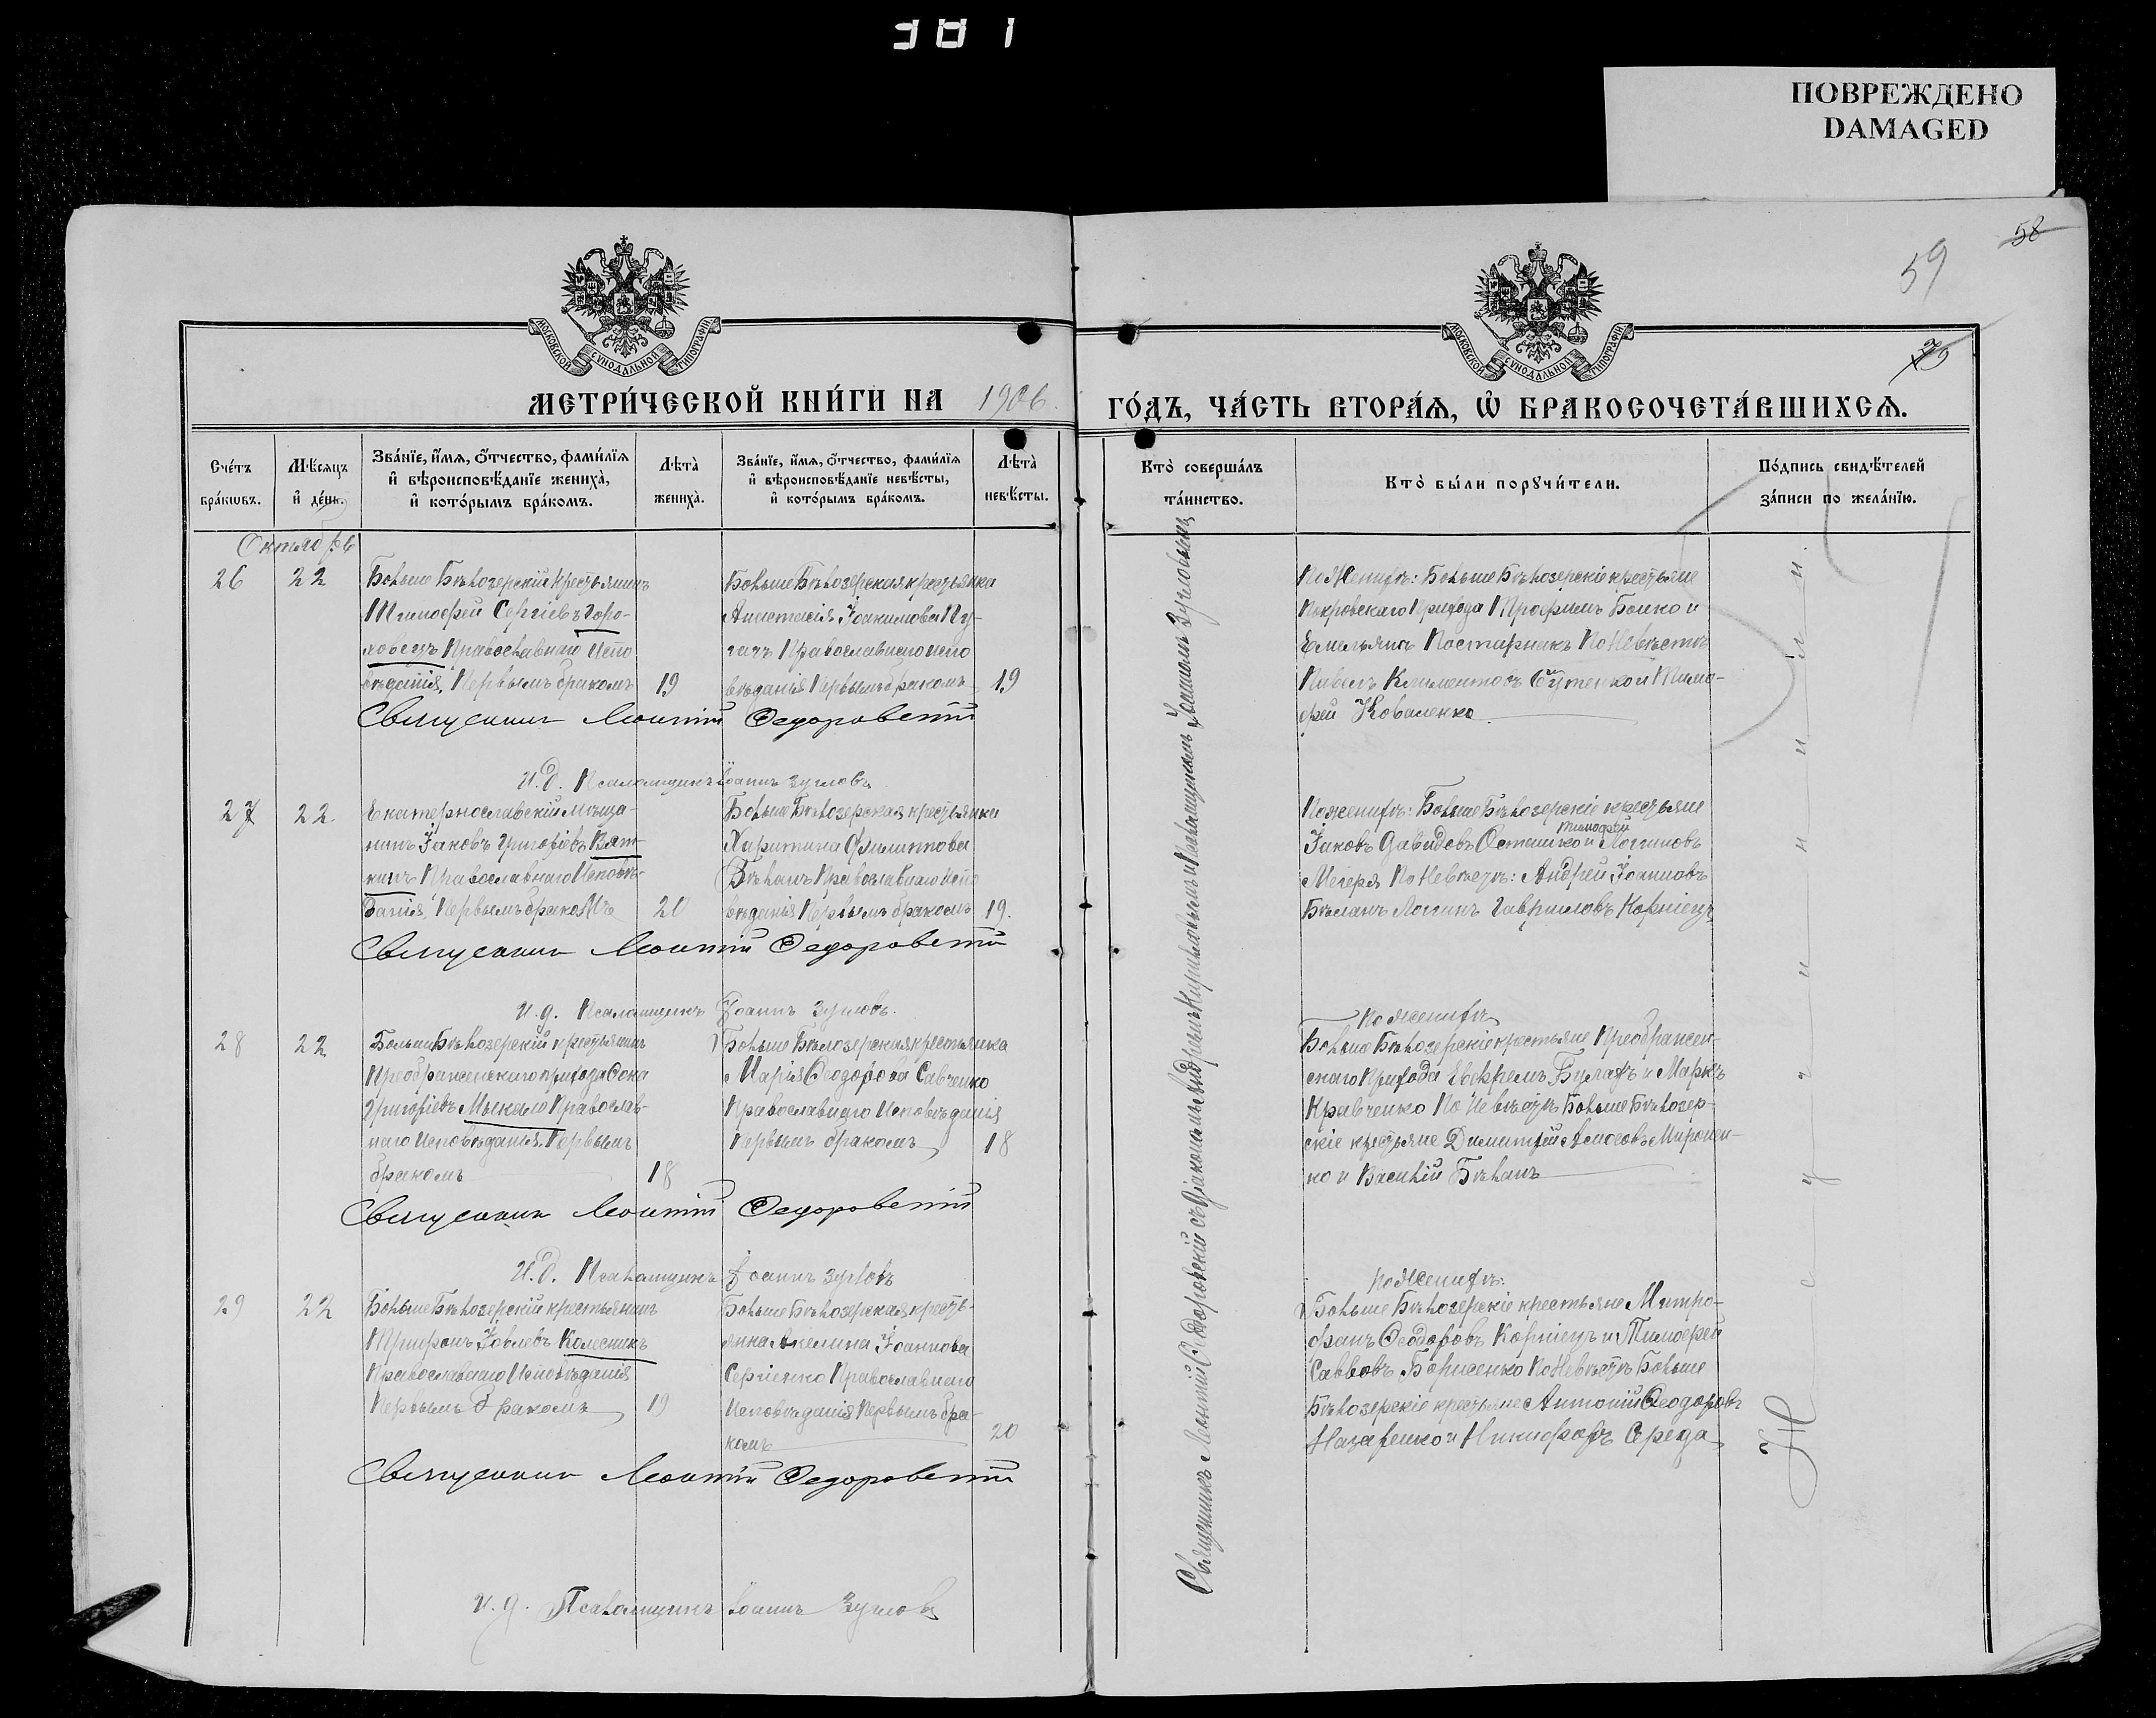 381
ПОВРЕЖДЕНО
DAMAGED
58
59
МОСКОВСКОЙ СѴНОДАЛЬНОЙ ТИПОГРАФІИ
МОСКОВСКОЙ СѴНОДАЛЬНОЙ ТИПОГРАФІИ
МЕТРИ́ЧЕСКОЙ КНИ́ГИ НА 1906.
ГО́ДЪ, ЧА́СТЬ ВТОРА́Ѧ, Ѡ БРАКОСОЧЕТА́ВШИХСѦ.
Сче́тъ бра́кѡвъ.
Мѣ́сѧцъ и҆ де́нь.
Зва́нїе, и҆́мѧ, ѻ҆́тчество, фами́лїѧ
и҆ вѣроисповѣ́данїе жениха̀,
и҆ кото́рымъ бра́комъ.
Лѣта̀ жениха̀.
Зва́нїе, и҆́мѧ, ѻ҆́тчество, фами́лїѧ
и҆ вѣроисповѣ́данїе невѣ́сты,
и҆ кото́рымъ бра́комъ.
Лѣта̀ невѣ́сты.
Кто̀ соверша́лъ та́инство.
Кто̀ бы́ли порꙋчи́тели.
По́дпись свидѣ́телей за́писи по жела́нїю.
Октябрь
26
22
Больше Бѣлозерскій крестьянинъ
Тимофей Сергіевъ Горо-
ховецъ Православнаго Испо
вѣданія, Первымъ бракомъ
19
Больше Бѣлозерская крестьянка
Анастасія Іоакимова Пу-
гачъ Православнаго испо
вѣданія Первымъ бракомъ
19
По Женихѣ: Больше Бѣлозерскіе крестьяне
Покровскаго Прихода Трофимъ Бойко и
Емельянъ Постарнакъ По Невѣстѣ
Павелъ Климентовъ Бутенко и Тимо-
фей Коваленко
Священникъ Леонтій Ѳедоровскій
И. Д. Псаломщикъ Іоаннъ Зугловъ
27
22
Екатеринославскій мѣща-
нинъ Іаковъ Григоріевъ Вят-
кинъ Православнаго Исповѣ-
данія, Первымъ бракомъ
20
Больше Бѣлозерская крестьянка
Харитина Филиппова
Бѣланъ Православнаго Испо
вѣданія Первымъ бракомъ
19.
По женихѣ: Больше Бѣлозерскіе крестьяне
Іаковъ Давидовъ Осташко и Тимофей Логгиновъ
Мегеря По Невѣстѣ: Андрей Іоанновъ
Бѣланъ Логинъ Гавриловъ Корніецъ
Священникъ Леонтій Ѳедоровскій
И. д. Псаломщикъ Іоаннъ Зугловъ.
28
22
Больше Бѣлозерскій крестьянинъ
Преображенскаго прихода Ѳока
Григоріевъ Мыкало Православ-
наго Исповѣданія, Первымъ
бракомъ
18
Больше Бѣлозерская крестьянка
Марія Ѳеодорова Савченко
Православнаго Исповѣданія
Первымъ бракомъ
18
По Женихѣ
Больше Бѣлозерскіе крестьяне Преображен-
скаго Прихода Евфремъ Булахъ и Маркъ
Кравченко По Невѣстѣ Больше Бѣлозер-
скіе крестьяне Димитрій Амосовъ Миронен-
ко и Василій Бѣланъ
Священникъ Леонтій Ѳедоровскій
И. Д. Псаломщикъ Іоаннъ Зугловъ
29
22
Больше Бѣлозерскій крестьянинъ
Трифонъ Іовлевъ Колесникъ
Православнаго Исповѣданія
Первымъ бракомъ
19
Больше Бѣлозерская кресть-
янка Акелина Іоаннова
Сергіенко Православнаго
Исповѣданія Первымъ бра-
комъ
20
По Женихѣ:
Больше Бѣлозерскіе крестьяне Митро-
фанъ Ѳеодоровъ Корніецъ и Тимофей
Саввовъ Борисенко По Невѣстѣ Больше
Бѣлозерскіе крестьяне Антоній Ѳеодоровъ
Назаренко и Никифоръ Середа
Священникъ Леонтій Ѳедоровскій
И. д. Псаломщикъ Іоаннъ Зугловъ
Священникъ Леонтій Ѳедоровскій съ Діакономъ Андреемъ Кирилловымъ и Псаломщикомъ Іоанномъ Зугловымъ